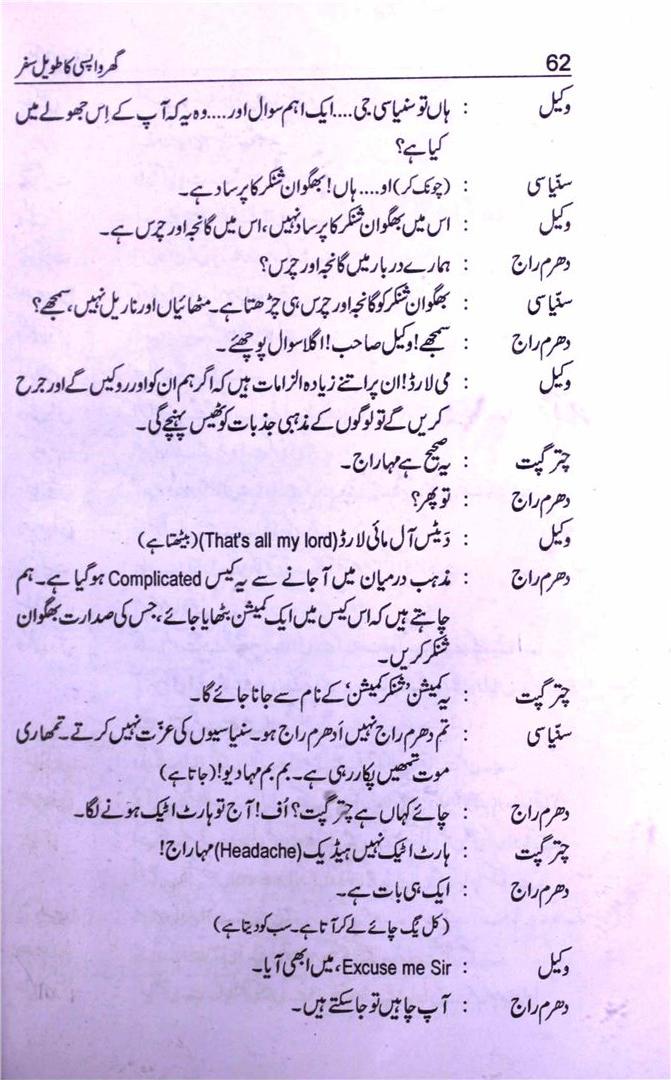 62 گھر واپسی کا طویل سفر
وکیل : ہاں تو سنیاسی جی....ایک اہم سوال اور....وہ یہ کہ آپ کے اِس جھولے میں
کیا ہے؟
سنّیاسی : (چونک کر) او.... ہاں! بھگوان شنکر کا پرساد ہے۔
وکیل : اس میں بھگوان شنکر کا پرساد نہیں، اس میں گانجہ اور چرس ہے۔
دھرم راج : ہمارے دربار میں گانجہ اور چرس؟
سنّیاسی : بھگوان شنکر کو گانجہ اور چرس ہی چڑھتا ہے۔ مٹھائیاں اور ناریل نہیں، سمجھے؟
دھرم راج : سمجھے! وکیل صاحب! اگلا سوال پوچھئے۔
وکیل : می لارڈ! ان پر اتنے زیادہ الزامات ہیں کہ اگر ہم ان کو اور روکیں گے اور جرح
کریں گے تو لوگوں کے مذہبی جذبات کو ٹھیس پہنچے گی۔
چتر گپت : یہ صحیح ہے مہاراج۔
دھرم راج : تو پھر؟
وکیل : دَیٹس آل مائی لارڈ (That's all my lord) (بیٹھتا ہے)
دھرم راج : مذہب درمیان میں آجانے سے یہ کیس Complicated ہوگیا ہے۔ ہم
چاہتے ہیں کہ اس کیس میں ایک کمیشن بٹھایا جائے، جس کی صدارت بھگوان
شنکر کریں۔
چتر گپت : یہ کمیشن ’شنکر کمیشن‘ کے نام سے جانا جائے گا۔
سنّیاسی : تم دھرم راج نہیں اَدھرم راج ہو۔ سنیاسیوں کی عزّت نہیں کرتے۔ تمھاری
موت تمھیں پکار رہی ہے۔ بم بم مہادیو! (جاتا ہے)
دھرم راج : چائے کہاں ہے چتر گپت؟ اُف! آج تو ہارٹ اٹیک ہونے لگا۔
چتر گپت : ہارٹ اٹیک نہیں ہیڈیک (Headache) مہاراج!
دھرم راج : ایک ہی بات ہے۔
(کل یگ چائے لے کر آتا ہے۔ سب کو دیتا ہے)
وکیل : Excuse me Sir، میں ابھی آیا۔
دھرم راج : آپ چاہیں تو جاسکتے ہیں۔